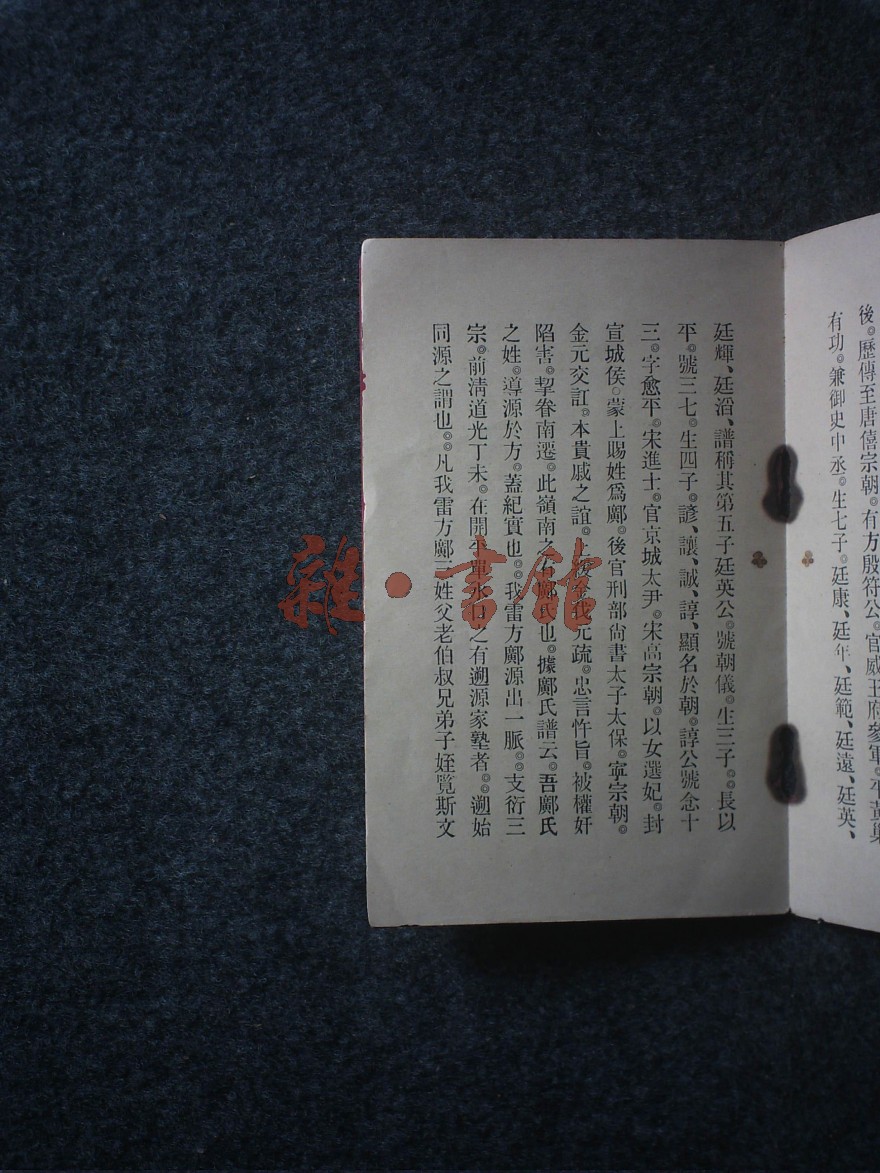 後。歷傳至唐僖宗朝。有方殷符公。官威王府參軍。平黃巢
有功。兼御史中丞。生七子。廷康、廷年、廷範、廷遠、廷英、
廷輝、廷滔、譜稱其第五子廷英公。號朝儀。生三子。。長以
平。號三七。生四子。諺、讓、誠、諄、顯名於朝。諄公號念十
三。字愈平。宋進士。官京城太尹。宋高宗朝。以女選妃。封
宣城侯。蒙上賜姓爲鄺。後官刑部尙書太子太保。寧宗朝。
金元交訌。本貴戚之誼。上金元疏。忠言忤旨。被權奸
陷害。挈眷南遷。此嶺南之有鄺氏也。據鄺氏譜云。吾鄺氏
之姓。導源於方。蓋紀實也。。我雷方鄺源出一脈。支衍三
宗。前淸道光丁未。在開平單水口之有遡源家塾者。。遡始
同源之謂也。。凡我雷方鄺三姓父老伯叔兄弟子姪覽斯文
雜·書館